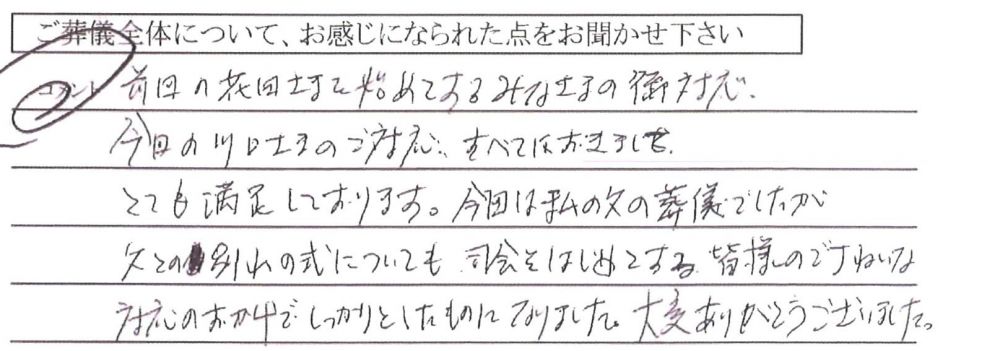 ご葬儀全体について、お感じになられた点をお聞かせ下さい
コメント 前回の花田さまを始めとするみなさまの御対応、
今回の川口さまのご対応、すべてにおきまして
とても満足しております。今回は私の父の葬儀でしたが
父との別れの式についても 司会をはじめとする 皆様のていねいな
対応のおかげでしっかりとしたものになりました。大変ありがとうございました。